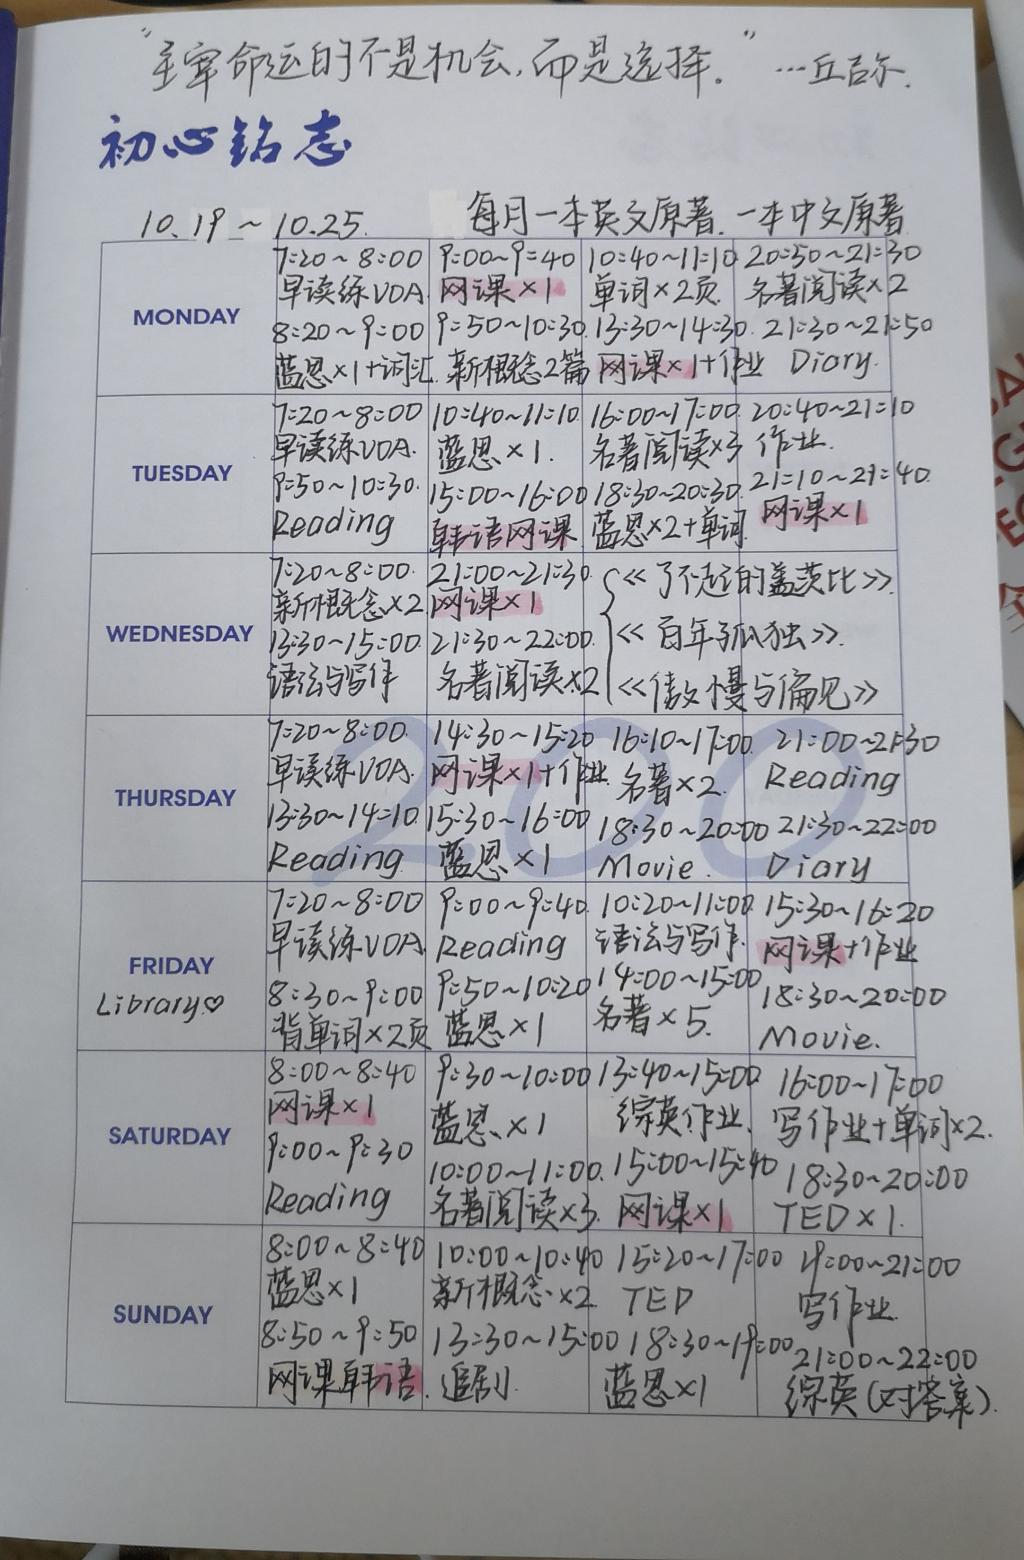 "主宰命运的不是机会,而是选择。" …丘吉尔.
初心铭志
10.19~10.25. 每月一本英文原著.一本中文原著
MONDAY
7:20~8:00 9:00~9:40 10:40~11:10 20:50~21:30
早读练VOA. 网课×1 单词×2页 名著阅读×2
8:20~9:00 9:50~10:30. 13:30~14:30. 21:30~21:50
蓝思×1+词汇. 新概念2篇 网课×1+作业 Diary.
TUESDAY
7:20~8:00 10:40~11:10. 16:00~17:00. 20:40~21:10
早读练VOA. 蓝思×1. 名著阅读×3 作业.
9:50~10:30. 15:00~16:00 18:30~20:30. 21:10~21:40.
Reading 韩语网课 蓝思×2+单词. 网课×1
WEDNESDAY
7:20~8:00. 21:00~21:30. <<了不起的盖茨比>>.
新概念×2 网课×1
13:30~15:00. 21:30~22:00. <<百年孤独>>.
语法与写作 名著阅读×2 <<傲慢与偏见>>
THURSDAY
7:20~8:00. 14:30~15:20 16:10~17:00. 21:00~21:30
早读练VOA. 网课×1+作业. 名著×2. Reading
13:30~14:10. 15:30~16:00 18:30~20:00 21:30~22:00
Reading. 蓝思×1 Movie. Diary
200
FRIDAY
Library♡
7:20~8:00 9:00~9:40. 10:20~11:00. 15:30~16:20
早读练VOA. Reading 语法与写作. 网课+作业
8:30~9:00 9:50~10:20 14:00~15:00. 18:30~20:00
背单词×2页 蓝思×1 名著×5. Movie.
SATURDAY
8:00~8:40 9:30~10:00 13:40~15:00 16:00~17:00
网课×1 蓝思×1 综英作业. 写作业+单词×2.
9:00~9:30 10:00~11:00. 15:00~15:40 18:30~20:00
Reading 名著阅读×3. 网课×1 TED×1.
SUNDAY
8:00~8:40 10:00~10:40 15:20~17:00 19:00~21:00
蓝思×1 新概念×2 TED 写作业.
8:50~9:50 13:30~15:00 18:30~19:00 21:00~22:00
网课韩语. 追剧. 蓝思×1 综英(对答案).